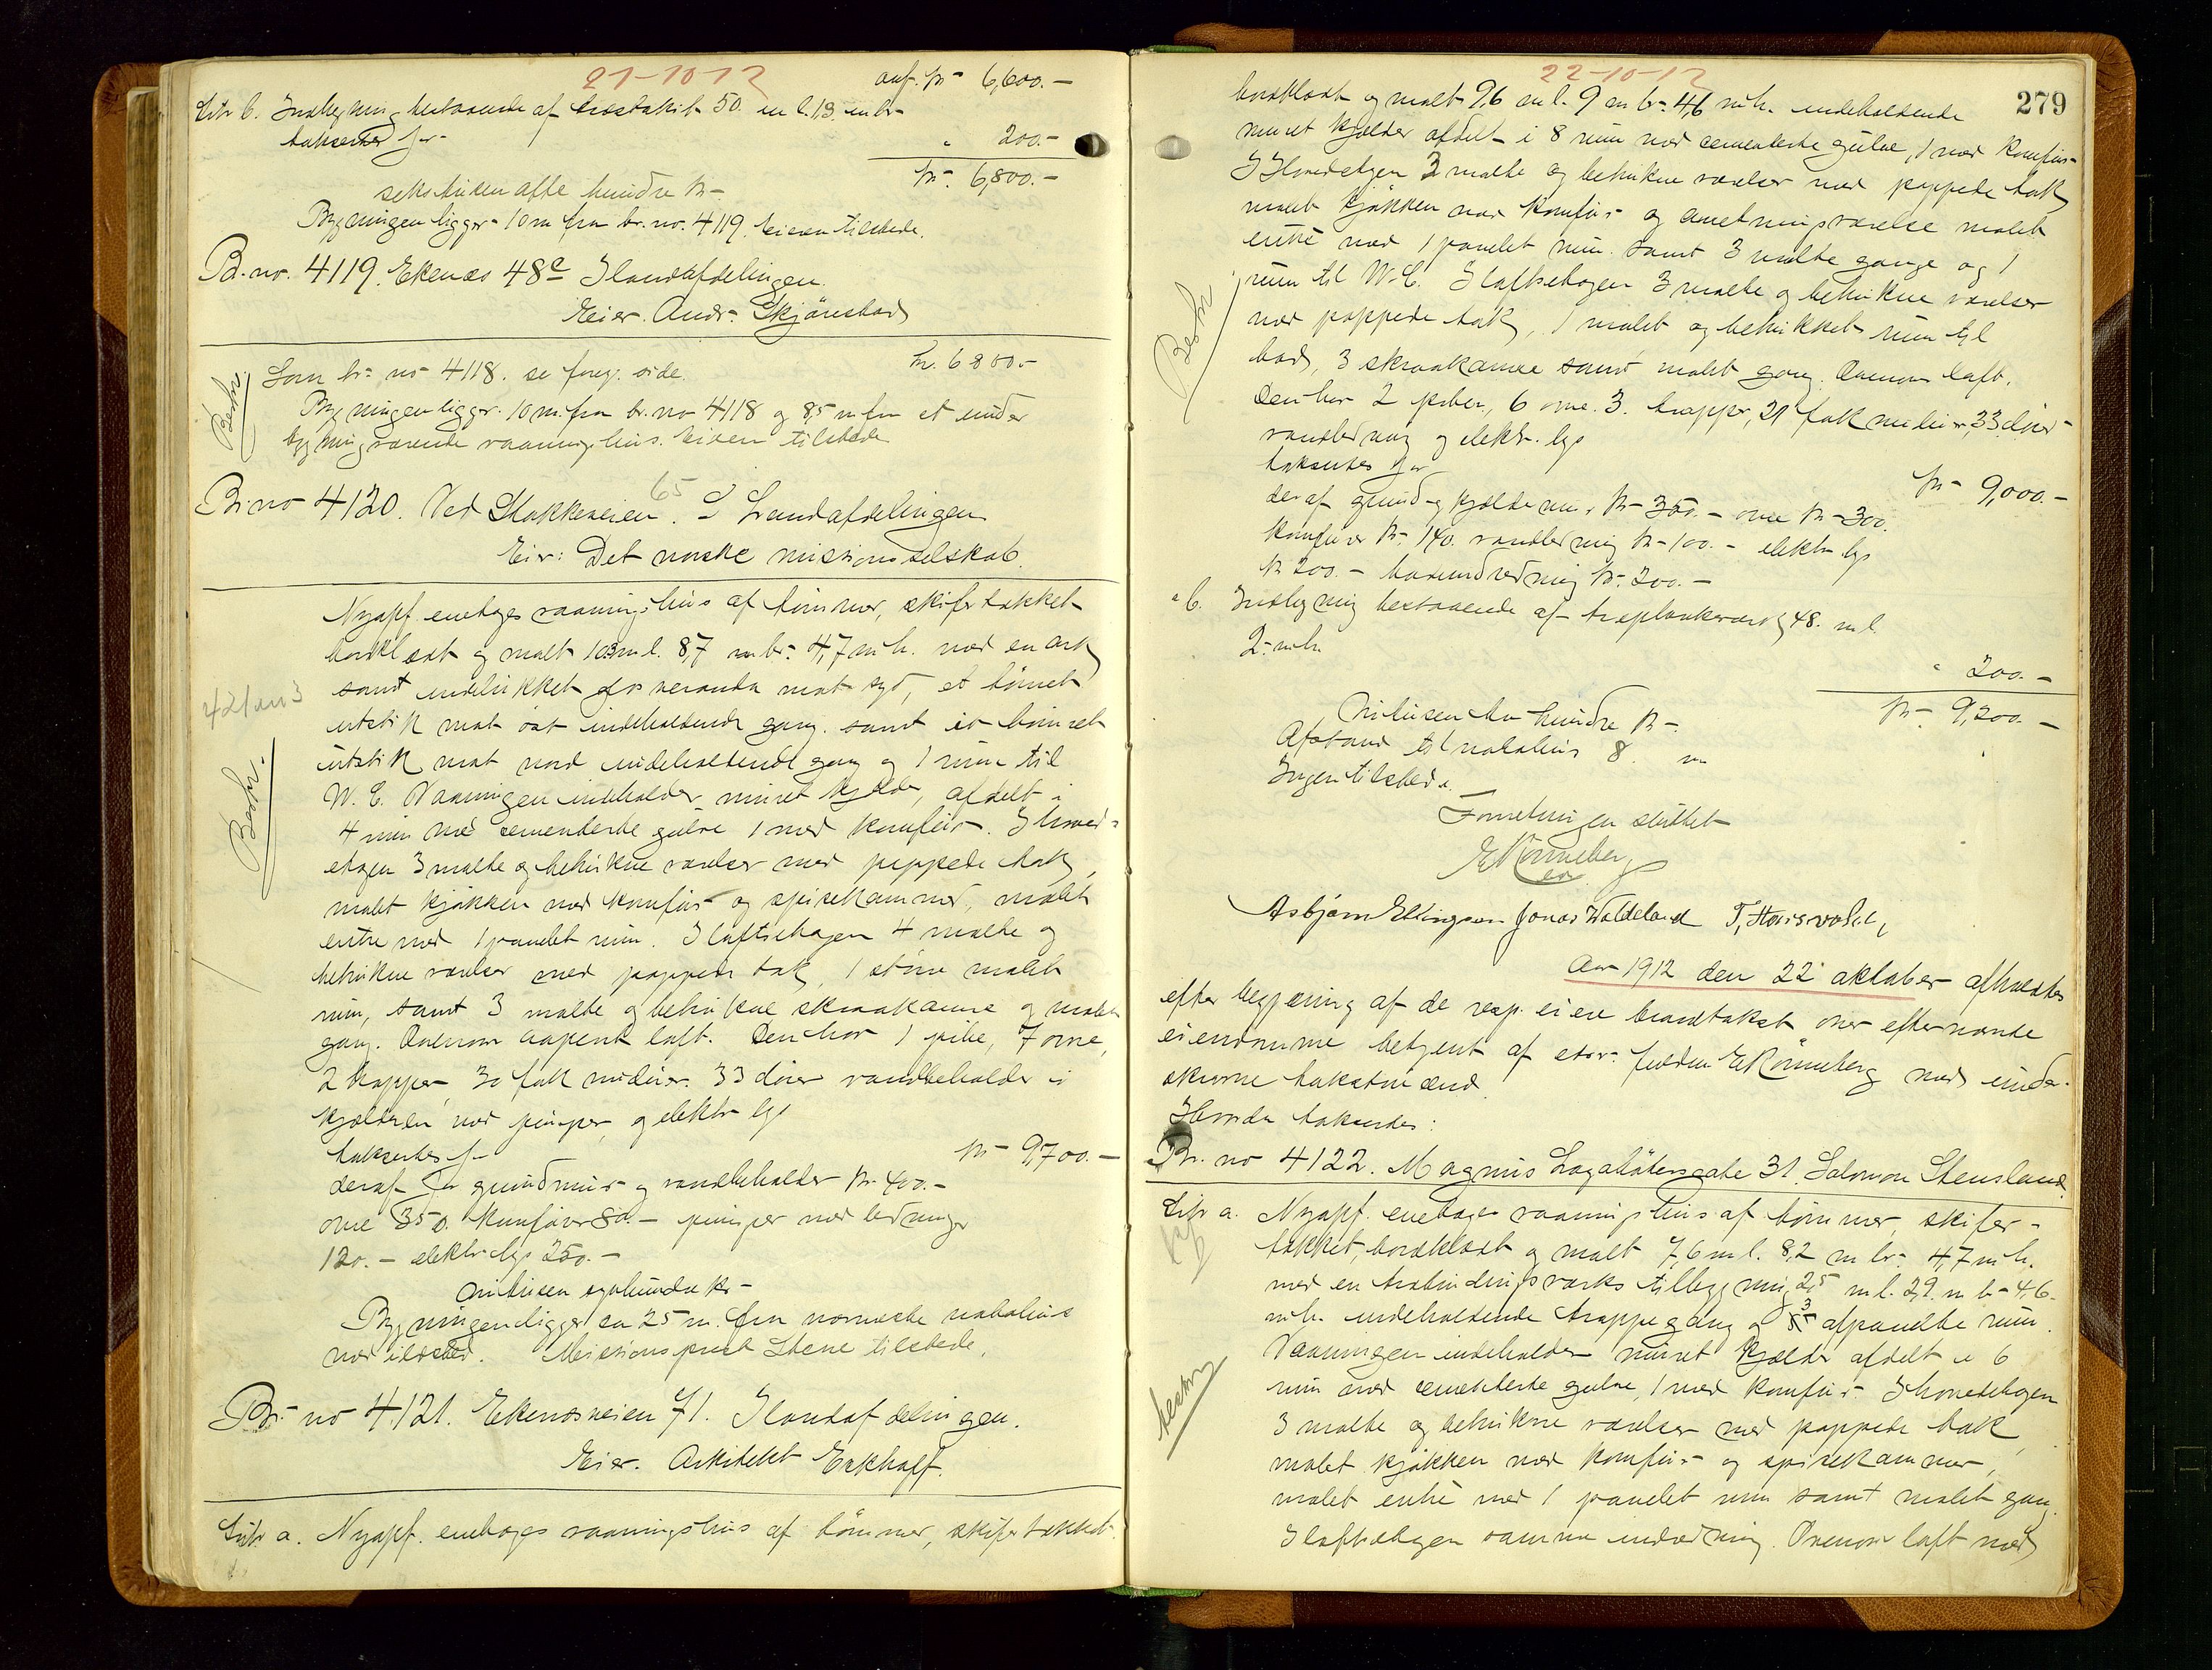 21-10-12
anf. kr 6,600.-
Litr b. Indhegning bestaaende af træstakit 50. m l. 13. m br
takseres for " 200.-
kr. 6,800.-
sekstusen otte hundre kr-
Bygningen ligger 10 m fra br. no. 4119. Eieren tilstede.
Br. no. 4119. Ekenæs 48c Ilandafdelingen.
Eier. Andr. Skjönstad
Beskr.
Som br. no 4118. se foreg. side. kr. 6800.-
Bygningen ligger. 10 m. fra br. no 4118 og 8,5 m fra et under
bygning værende vaaningshus. Eieren tilstede
Br. no 4120. Ved Stokkaveien. 65 I Landafdelingen
Eier: Det norske missionsselskab.
Beskr.
Nyopf. enetages vaaningshus af tømmer, skifertækket
bordklædt og malt 10.3 m l. 8,7 m br. 4,7 m h. med en ark
samt indelukket glasveranda mot syd, et tømret
utstik mot øst indeholdende gang. samt et tømret
utstik mot nord indeholdende gang og 1 rum til
W. C. Vaaningen indeholder muret kjelder, afdelt i
4 rum med cementerte gulve 1 med komfur. I hoved-
etagen 3 malte og betrukne værelser med pappede tak,
malet kjøkken med komfur og spisekammer, malet
entre med 1 panelet rum. I loftsetagen 4 malte og
betrukne værelser med pappede tak, 1 større malet
rum, samt 3 malte og betrukne skraakamre og malet
gang. Ovenom aapent loft. Den har 1 pibe, 7 ovne,
2 trapper, 30 fak vinduer. 33 dører vandbeholder i
kjelderen med pumper, og elektr. lys
takseres for kr 9,700.-
deraf for grundmur og vandbeholder kr. 400.-
ovne 350. komfurer 80.- pumper med ledninger
120.- elektr. lys 250.-
nitusen syvhundre kr-
Bygningen ligger ca 25 m. fra nærmeste nabohus
med ildsted. Missionsprest Stene tilstede.
Br. no 4121. Ekenæsveien 71. Ilandafdelingen.
Eier. Arkitekt Eckhoff.
Litr a. Nyopf. enetages vaaningshus af tømmer, skifertækket
22-10-12
279
bordklædt og malt 9,6 m l. 9 m br. 4,6 m h. indeholdende
muret kjelder afdelt i 8 rum med cementerte gulve, 1 med komfur
I Hovedetagen 3 malte og betrukne værelser med pappede tak
malet kjøkken med komfur og anretningsværelse malet
entre med 1 panelet rum. samt 3 malte gange og 1
rum til W. C. I loftsetagen 3 malte og betrukne værelser
med pappede tak, 1 malet og betrukket rum til
bad, 3 skraakamre samt malet gang. Ovenom loft.
Den har 2 piber, 6 ovne. 3. trapper, 21 fak vinduer, 33 dører
vandledning og elektr. lys
Beskr
takseres for kr 9,000.-
deraf grund og kjeldermur kr 350.- ovne kr 300.
komfurer kr. 140. vandledning kr 100.- elektr. lys
kr 200.- badeindredning kr. 200.-
" b. Indhegning bestaaende af træplankeværk 48. m l.
2. m h. " 200.-
kr 9,200.-
Nitusen to hundre kr-
Afstand til nabohus 8. m
Ingen tilstede.
Forretningen sluttet
E Rönneberg
Asbjørn Ellingsen Jonas Waldeland
Aar 1912 den 22 oktober afholdtes
efter begjæring af de resp. eiere brandtakst over efternævnte
eiendomme betjent af fuldm E Rönneberg med under-
skrevne takstmænd.
Hvorda takseredes:
Br. no 4122. Magnus Lagabötersgate 31. Salomon Stensland
Litr a. Nyopf. enetages vaaningshus af tømmer, skifer-
tækket, bordklædt og malt 7,6 m l. 8,2 m br. 4,7 m h.
med en utabindingsverks tilbygning 2,5 m l. 2,2 m b- 4,6
m h. indeholdende trappegang og 3 afpanelte rum.
Vaaningen indeholder muret kjelder afdelt i 6
rum med cementerte gulve, 1 med komfur. I hovedetagen
3 malte og betrukne værelser med pappede tak
malet kjøkken med komfur og spisekammer,
malet entre med 1 panelet rum samt malet gang.
I loftsetagen samme indredning. Ovenom loft med